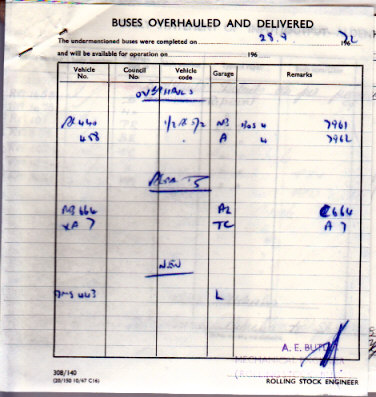 BUSES OVERHAULED AND DELIVERED
The undermentioned buses were completed on 28.9 196 72
and will be available for operation on 196
Vehicle No. Council No. Vehicle code Garage Remarks
OVERHAULS
440 5/2 NB 4 7961
458 A 4 7962
MB 666 AL 664
XA 7 TC A 7
NEW
DMS 443 L
A. E.
308/140
(20/150 10/67 C16) ROLLING STOCK ENGINEER